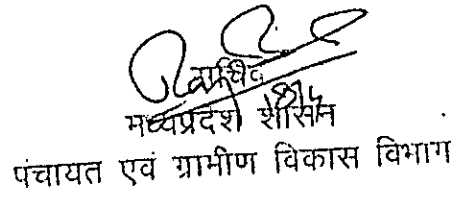 मध्यप्रदेश शासन
पंचायत एवं ग्रामीण विकास विभाग